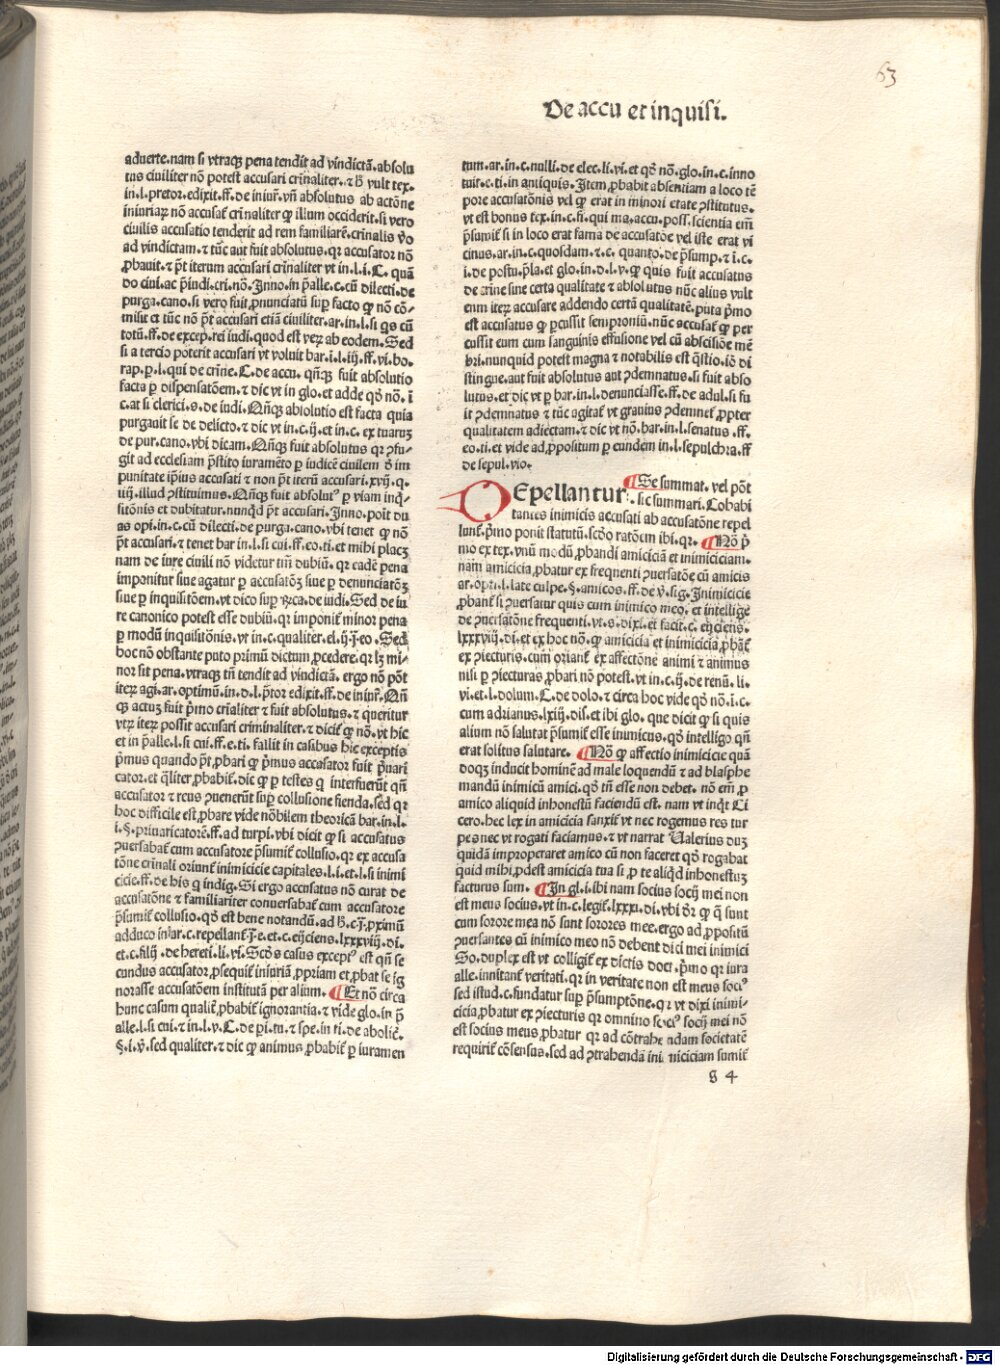 63
De accu et inquisi.
aduerte.nam si vtraqꝫ pena tendit ad vindictā.absolu
tus ciuiliter nō potest accusari crīnaliter.⁊ ħ vult tex.
in.l.pretor.edixit.ff.de iniur̄.vn̄ absolutus ab actōne
iniuriaꝝ nō accusat᷑ crīnaliter ꝙ illum occiderit.si vero
ciuilis accusatio tenderit ad rem familiarē.crīnalis v̄o
ad vindictam.⁊ tūc aut fuit absolutus.qꝛ accusator nō
ꝓbauit.⁊ p̄t iterum accusari crīnaliter vt in.l.i.C. quā
do ciui.ac p̄iudi.cri.nō.Inno.in p̄alle.c.cū dilecti.de
purga.cano.si vero fuit ꝓnunciatū suꝑ facto ꝙ nō cō-
misit tūc nō p̄t accusari etiā ciuiliter.ar.in.l.si qs cū
totū.ff.de excep.rei iudi.quod est veꝝ ab eodem.Sed
si a tercio poterit accusari vt voluit bar.i.l.iij.ff.vi.bo.
rap.ꝑ.l.qui de crīne.C.de accu. qn̄qꝫ fuit absolutio
facta ꝑ dispensatōem.⁊ dic vt in glo.et adde qđ nō.ī
c.at si clerici.s.de iudi.Qn̄qꝫ absolutio est facta quia
purgauit se de delicto.⁊ dic vt in.c.ij.et in.c. ex tuaruꝫ
de pur.cano.vbi dicam.Qn̄qꝫ fuit absolutus qꝛ ↄfu-
git ad ecclesiam p̄stito iuramēto ꝑ iudicē ciuilem đ im
punitate ip̄ius accusati ⁊ non p̄t iterū accusari.xvij.q.
iiij.illud ↄstituimus.Qn̄qꝫ fuit absolutꝰ ꝑ viam inq̄-
sitōnis et dubitatur.nunqđ p̄t accusari.Inno.poit du
as opi.in.c.cū dilecti.de purga.cano.vbi tenet ꝙ nō
p̄t accusari.⁊ tenet bar in.l.si cui.ff.eo.ti.et mihi placꝫ
nam de iure ciuili nō videtur tm̄ dubiū. qꝛ eadē pena
imponitur siue agatur ꝑ accusatōꝫ siue ꝑ denunciatōꝫ
siue ꝑ inquisitōem.vt dico suꝑ rꝛca.de iudi.Sed de iu
re canonico potest esse dubiū.qꝛ imponit᷑ minor pena
ꝑ modū inquisitōnis.vt in.c.qualiter.el.ij.j.eo.Sed
hoc nō obstante puto primū dictum ꝓcedere.qꝛ lꝫ mi-
nor sit pena.vtraqꝫ tn̄ tendit ad vindictā. ergo nō pōt
iteꝝ agi.ar.optimū.in.d.l.p̄tor edixit.ff.de iniur̄.Qn̄
qꝫ actuꝫ fuit p̄mo crīaliter ⁊ fuit absolutus.⁊ queritur
vtꝝ iteꝝ possit accusari criminaliter.⁊ dicit᷑ ꝙ nō.vt hic
et in p̄alle.l.si cui.ff.e.ti. fallit in casibus hic exceptis
p̄mus quando p̄t ꝓbari ꝙ p̄mus accusator fuit p̄uari
cator.et q̄liter ꝓbabit᷑.dic ꝙ ꝑ testes q̄ interfuerūt qn̄
accusator ⁊ reus ↄuenerūt suꝑ collusione fienda.sed qꝛ
hoc difficile est ꝓbare vide nōbilem theoricā bar.in.l.
i.§.p̄uaricatorē.ff.ad turpi.vbi dicit ꝙ si accusatus
ↄuersabat᷑ cum accusatore p̄sumit᷑ collusio.qꝛ ex accusa
tōne crīnali oriunt᷑ inimicicie capitales.l.i.et.l.si inimi
cicie.ff.de his q̄ indig.Si ergo accusatus nō curat de
accusatōne ⁊ familiariter conuersabat᷑ cum accusatore
p̄sumit᷑ collusio.qđ est bene notandū.ad ħ.c.j.ꝓximū
adduco in ar.c.repellant᷑.j.e.et.c.eijciens.lxxxviij.di.
et.c.filij.de hereti.li.vi.Scđs casus exceptꝰ est qn̄ se
cundus accusator ꝓsequit᷑ iniuriā ꝓpriam et ꝓbat se ig
norasse accusatōem institutā per alium. ¶Et nō circa
hunc casum qualit᷑ ꝓbabit᷑ ignorantia.⁊ vide glo.in p̄
alle.l.si cui.⁊ in.l.v.C.de ꝑi.tu.⁊ spe.in ti.de abolic̄.
§.i.v̄.sed qualiter.⁊ dic ꝙ animus ꝓbabit᷑ ꝑ iuramen
tum.ar.in.c.nulli.de elec.li.vi.et qđ nō.glo.in.c.inno
tuit.c.ti.in antiquis.Item ꝓbabit absentiam a loco tē
pore accusatōnis vel ꝙ erat in minori etate ↄstitutus.
vt est bonus tex.in.c.fi.qui ma.accu.poss.scientia em̄
p̄sumit᷑ si in loco erat fama de accusatōe vel iste erat vi
cinus.ar.in.c.quosdam.⁊.c. quanto.de p̄sump.⁊ ī.c.
i.de postu.p̄la.et glo.in.d.l.v.ꝙ quis fuit accusatus
de crīne sine certa qualitate ⁊ absolutus nūc alius vult
eum iteꝝ accusare addendo certā qualitatē.puta p̄mo
est accusatus ꝙ ꝑcussit semproniū.nūc accusat᷑ ꝙ per
cussit eum cum sanguinis effusione vel cū abscisiōe mē
bri.nunquid potest magna ⁊ notabilis est q̄stio.iō di
stingue.aut fuit absolutus aut ↄdemnatus.si fuit abso
lutus.et dic vt ꝑ bar.in.l.denunciasse.ff.de adul.si fu
it ↄdemnatus ⁊ tūc agitat᷑ vt grauius ↄdemnet᷑ ꝓpter
qualitatem adiectam.⁊ dic vt nō.bar.in.l.senatus .ff.
eo.ti.et vide ad ꝓpositum ꝑ eundem in.l.sepulchra.ff
de sepul.vio.
Epellantur. ¶Se summat. vel pōt
sic summari.Cohabi
tantes inimicis accusati ab accusatōne repel
lunt᷑.p̄mo ponit statutū.scđo ratōem ibi.qꝛ. ¶Nō p̄
mo ex tex.vnū modū ꝓbandi amiciciā et inimiciciam.
nam amicicia ꝓbatur ex frequenti ↄuersatōe cū amicis
ar.opti.l.late culpe.§.amicos.ff.de v̄.sig.Inimicicie
ꝓbant᷑ si ↄuersatur quis cum inimico meo. et intellige
de ↄuersatōne frequenti.vt.s.dixi.et facit.c.eijciens.
lxxxviij.di.et ex hoc nō.ꝙ amicicia et inimicicia ꝓbāt᷑
ex ↄiecturis.cum oriant᷑ ex affectōne animi ⁊ animus
nisi ꝑ ↄiecturas ꝓbari nō potest.vt in.c.ij.de renū.li.
vi.et.l.dolum.C.de dolo.⁊ circa hoc vide qđ nō.ī.c.
cum adrianus.lxiij.dis.et ibi glo. que dicit ꝙ si quis
alium nō salutat p̄sumit᷑ esse inimicus.qđ intelligo qn̄
erat solitus salutare. ¶Nō ꝙ affectio inimicicie quā
doqꝫ inducit hominē ad male loquendū ⁊ ad blasphe
mandū inimicū amici.qđ tn̄ esse non debet. nō em̄ ꝓ
amico aliquid inhonestū faciendū est. nam vt inqt Ci
cero.hec lex in amicicia sanxit᷑ vt nec rogemus res tur
pes nec vt rogati faciamus.⁊ vt narrat Valerius duꝫ
quidā improperaret amico cū non faceret qđ rogabat
quid mihi ꝓdest amicicia tua si ꝑ te aliqđ inhonestuꝫ
facturus sum. ¶In gl.i.ibi nam socius socij mei non
est meus socius.vt in.c.legit᷑.lxxxi.di.vbi đr ꝙ q̄ sunt
cum sorore mea nō sunt sorores mee.ergo ad ꝓpositū
ↄuersantes cū inimico meo nō debent dici mei inimici
So.duplex est vt colligit᷑ ex dictis doct.p̄mo qꝛ iura
alle.innitant᷑ veritati.qꝛ in veritate non est meus sociꝰ
sed istud.c.fundatur suꝑ p̄sumptōne.qꝛ vt dixi inimi-
cicia ꝓbatur ex ↄiecturis qꝛ omnino sociꝰ socij mei nō
est socius meus ꝓbatur qꝛ ad cōtrahendam societatē
requirit᷑ cōsensus.sed ad ↄtrahendā inimiciciam sumit᷑
g 4
Digitalisierung gefördert durch die Deutsche Forschungsgemeinschaft - DFG